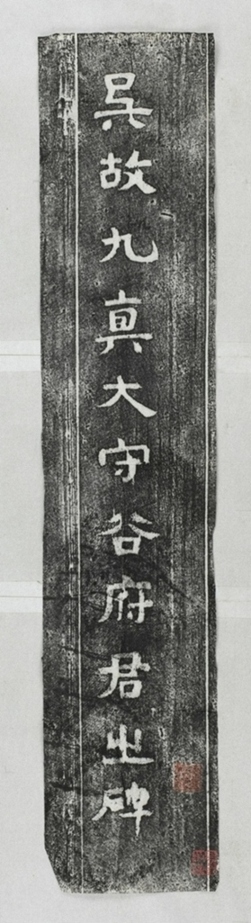 吳故九真大守谷府君之碑